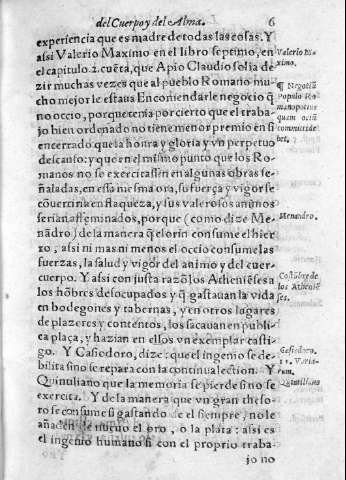 del Cuerpo y del Alma. 6
experiencia que es madre de todas las cosas. Y
assi Valerio Maximo en el libro septimo, en
el capitulo.2.cuẽta, que Apio Claudio solia de
zir muchas vezes que al pueblo Romano mu
cho mejor le estaua Encomendarle negocio q̃
no occio, porque tenia por cierto que el traba-
jo bien ordenado no tiene menor premio en si
encerrado que la honra y gloria y vn perpetuo
descanso: y que en el mismo punto que los Ro-
manos no se exercitassen en algunas obras se-
ñaladas, en esse mesma ora, su fuerça y vigor se
cõuertiria en flaqueza, y sus valerosos animos
serian affeminados, porque ( como dize Me-
nãdro) de la manera q̃ el orin consume el hier
ro, assi ni mas ni menos el occio consume las
fuerzas, la salud y vigor del animo y del cuer-
cuerpo. Y assi con justa razõ los Atheniẽses a
los hõbres desocupados y q̃ gastauan la vida
en bodegones y tabernas, y en otros lugares
de plazeres y contentos, los sacauan en publi-
ca plaça, y hazian en ellos vn exemplar casti-
go. Y Casiodoro, dize: que el ingenio se de-
bilita sino se repara con la continua lection. Y
Quintuliano que la memoria se pierde sino se
exercita. Y de la manera que vn gran theso-
ro se consume si gastando de el siempre, no le
añaden de nueuo el oro, o la plata: assi es
el ingenio humano si con el proprio traba-
jo no
Valerio Ma-
ximo.
¶ Negotiũ
Populo Ro
mano potius
quam ociũ
committi de
bet,
Menandro.
Costũbre de
los Atheniẽ
ses.
Casiodoro,
Varia-
rum.
Quintiliano